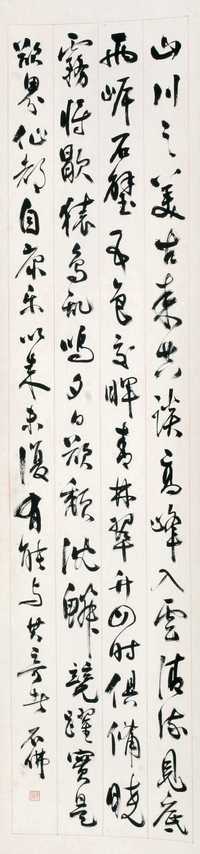 山川之美古來共談高峰入雲清流見底
兩岸石壁五色交暉青林翠竹四時俱備曉
霧將歇猿鳥亂鳴夕日欲頹沈鱗競躍實是
欲界仙都自康樂以來未復有能與其奇者 石佛